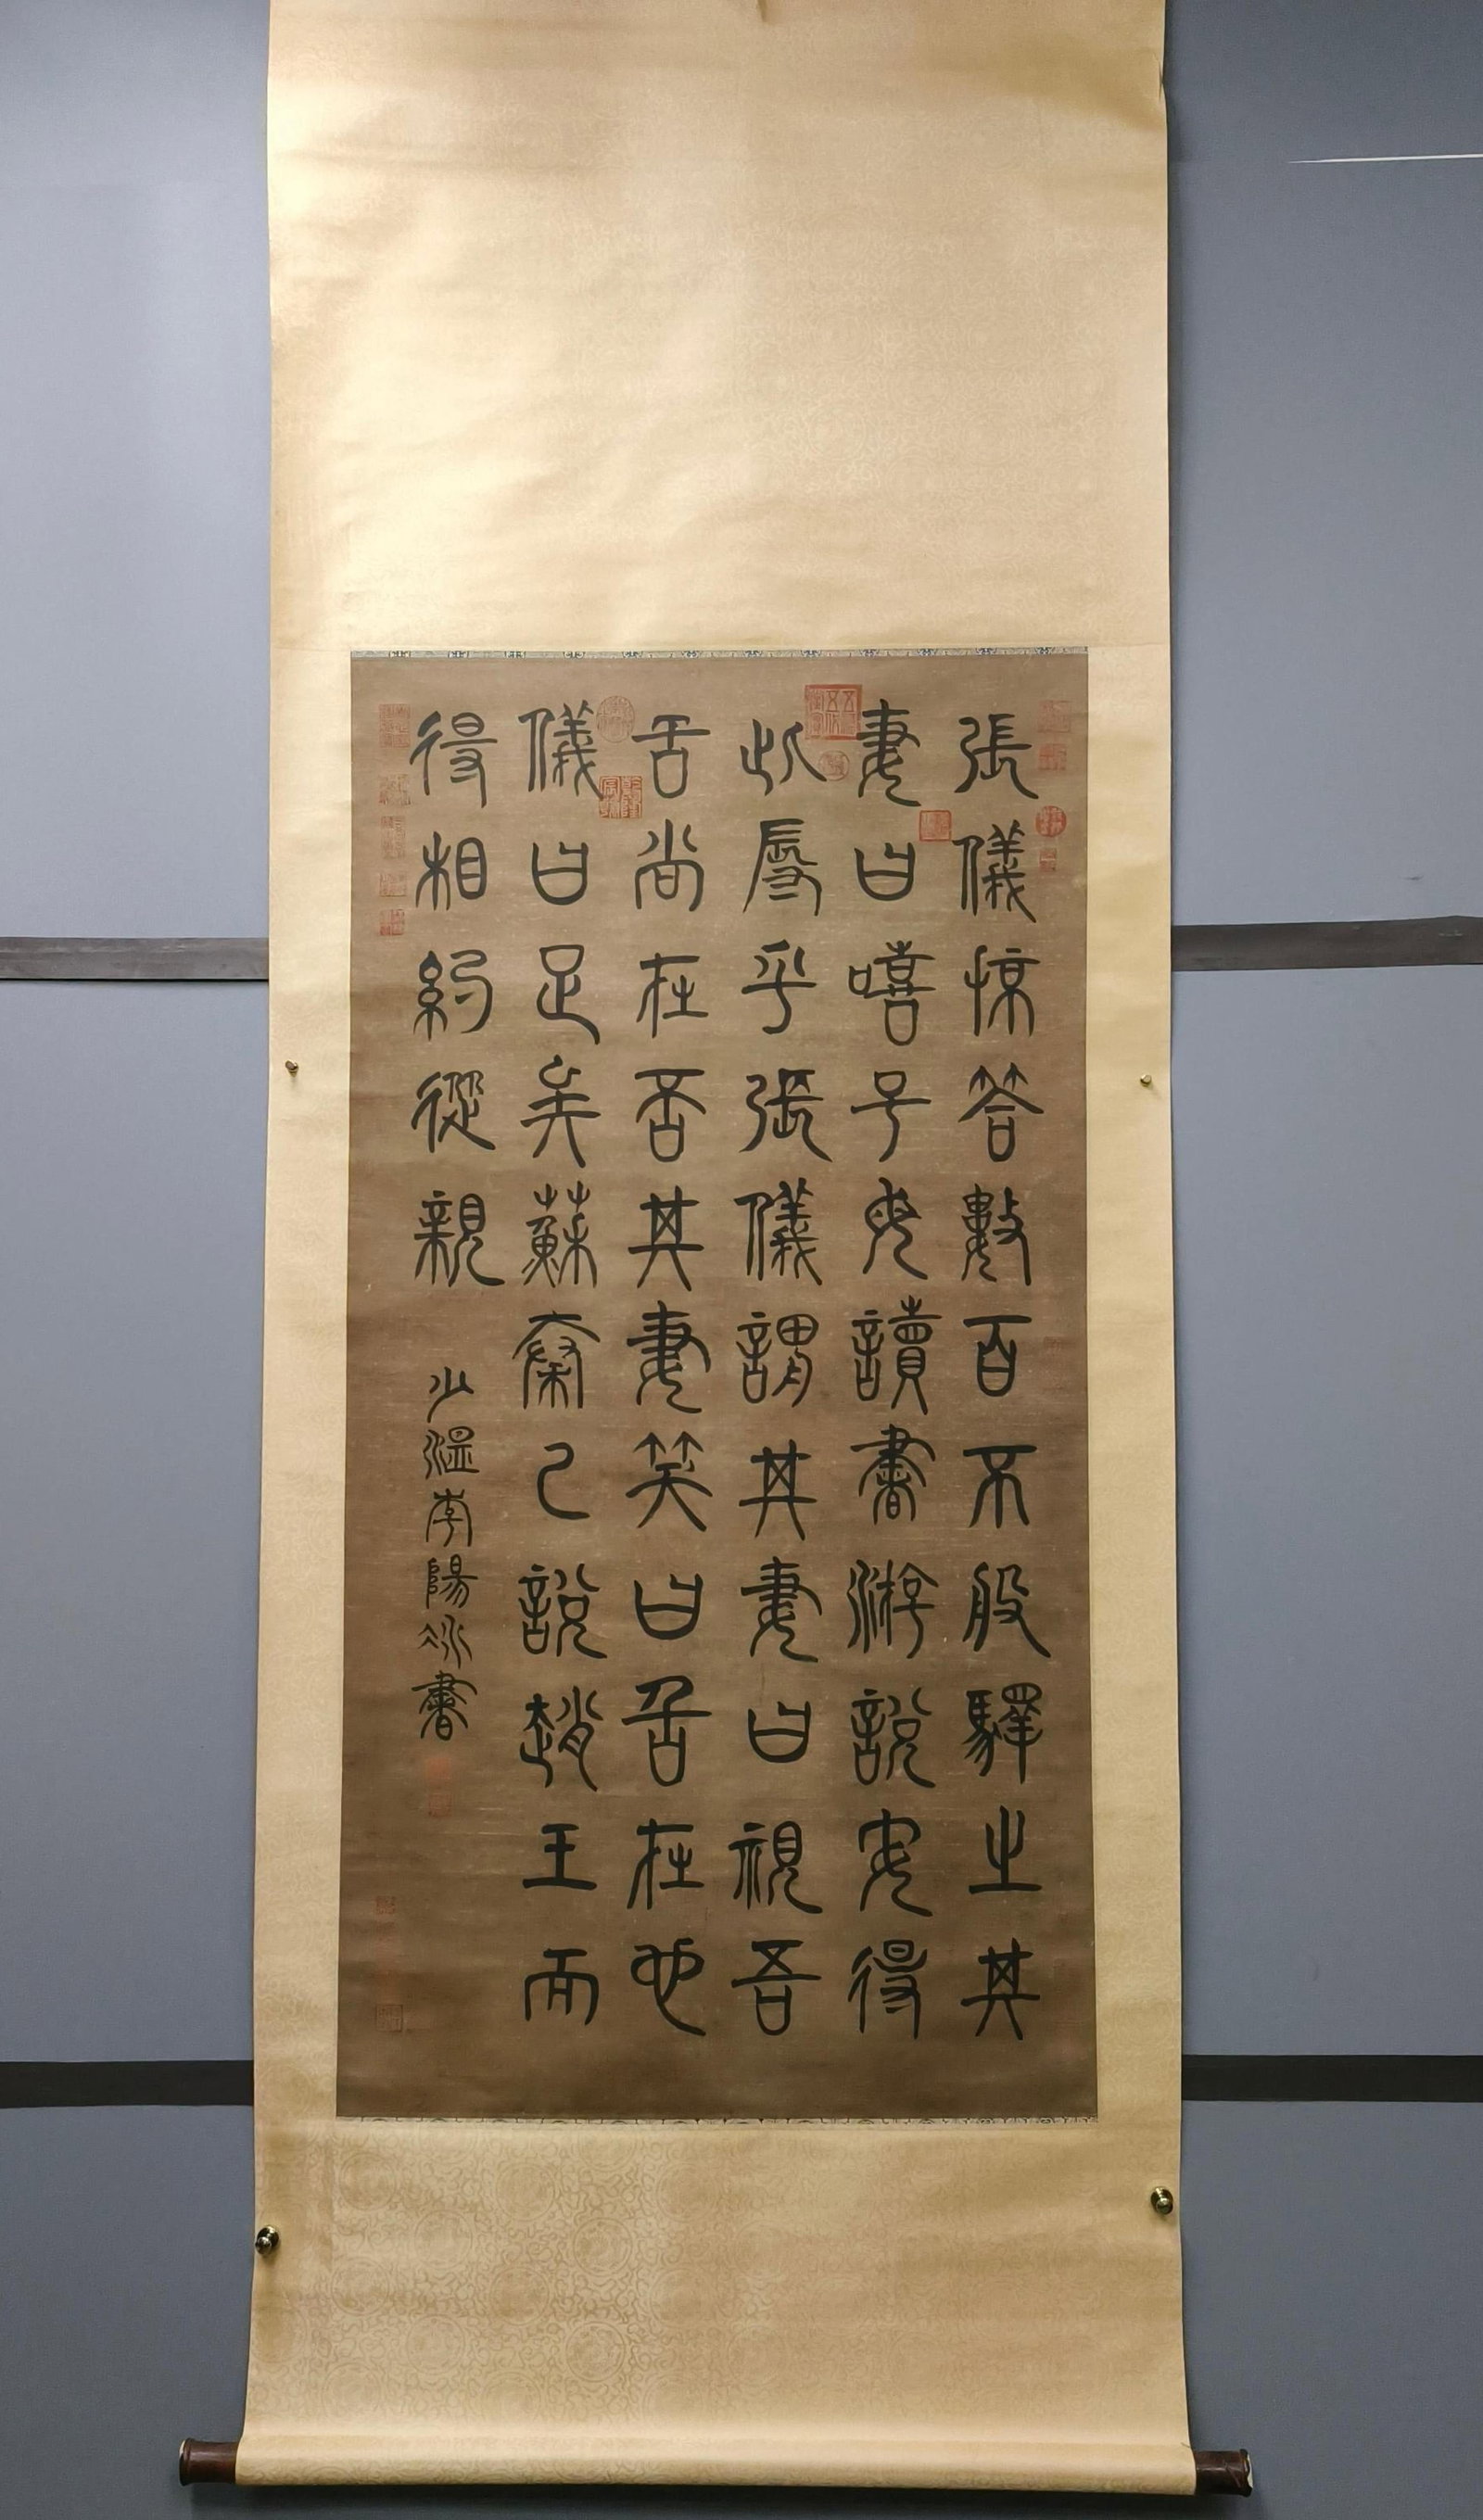 張儀掠答數百不服驛之其
妻曰嘻子毋讀書游說安得
此辱乎張儀謂其妻曰視吾
舌尚在否其妻笑曰舌在也
儀曰足矣蘇秦已說趙王而
得相約從親
少溫李陽冰書